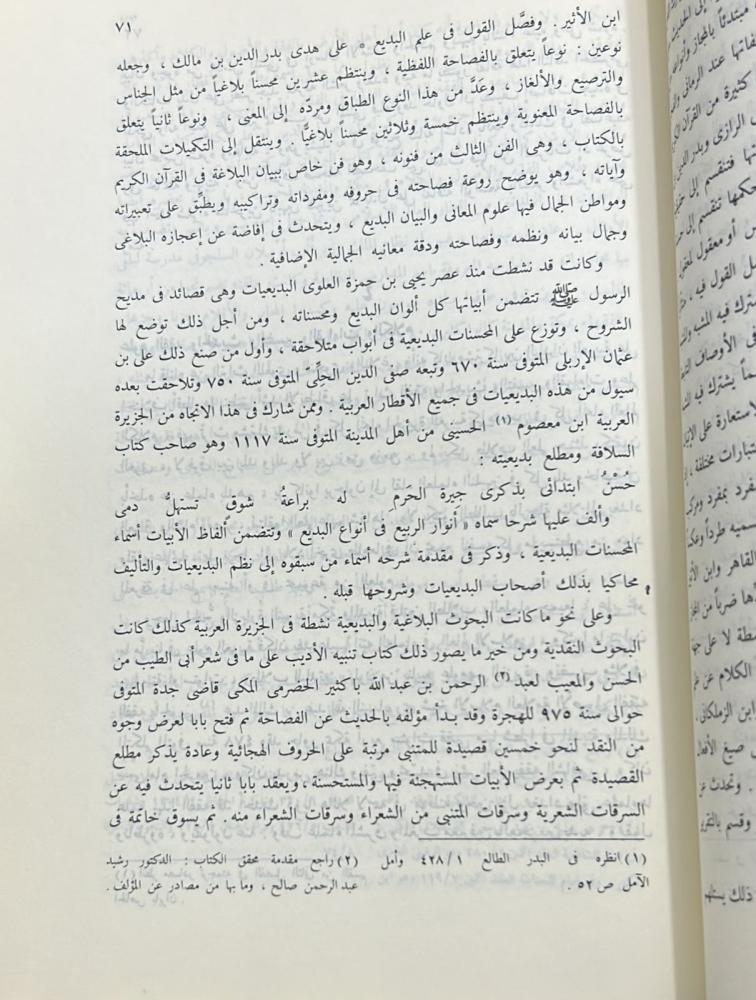 ٧١
ابن الأثير. وفصَّل القول فى علم البديع » على هدى بدر الدين بن مالك ، وجعله
نوعين : نوعاً يتعلق بالفصاحة اللفظية ، وينتظم عشرين محسناً بلاغياً من مثل الجناس
والترصيع والألغاز ، وعَدَّ من هذا النوع الطباق ومردّه إلى المعنى ، ونوعاً ثانياً يتعلق
بالفصاحة المعنوية وينتظم خمسة وثلاثين محسناً بلاغيًّا . وينتقل إلى التكميلات الملحقة
بالكتاب ، وهى الفن الثالث من فنونه ، وهو فن خاص ببيان البلاغة فى القرآن الكريم
وآياته ، وهو يوضح روعة فصاحته فى حروفه ومفرداته وتراكيبه ويطبِّق على تعبيراته
ومواطن الجمال فيها علوم المعانى والبيان البديع ، ويتحدث فى إفاضة عن إعجازه البلاغى
وجمال بيانه ونظمه وفصاحته ودقة معانيه الجمالية الإضافية .
وكانت قد نشطت منذ عصر يحيى بن حمزة العلوى البديعيات وهى قصائد فى مديح
الرسول ﷺ تتضمن أبياتها كل ألوان البديع ومحسناته ، ومن أجل ذلك توضع لها
الشروح ، وتوزع على المحسنات البديعية فى أبواب متلاحقة ، وأول من صنع ذلك على بن
عثمان الإربلى المتوفى سنة ٦٧٠ وتبعه صفى الدين الحِلِّىّ المتوفى سنة ٧٥٠ وتلاحقت بعده
سيول من هذه البديعيات فى جميع الأقطار العربية . وممن شارك فى هذا الاتجاه من الجزيرة
العربية ابن معصوم (١) الحسينى من أهل المدينة المتوفى سنة ١١١٧ وهو صاحب كتاب
السلافة ومطلع بديعيته :
حُسْنُ ابتدائى بذكرى جِيرة الحَرمِ له براعةُ شوقٍ تستهلُّ دمى
وألف عليها شرحا سماه « أنوار الربيع فى أنواع البديع » وتتضمن ألفاظ الأبيات أسماء
المحسنات البديعية ، وذكر فى مقدمة شرحه أسماء من سبقوه إلى نظم البديعيات والتأليف
محاكيا بذلك أصحاب البديعيات وشروحها قبله .
وعلى نحو ما كانت البحوث البلاغية والبديعية نشطة فى الجزيرة العربية كذلك كانت
البحوث النقدية ومن خير ما يصور ذلك كتاب تنبيه الأديب على ما فى شعر أبى الطيب من
الحسن والمعيب لعبد (٢) الرحمن بن عبد الله باكثير الحضرمى المكى قاضى جدة المتوفى
حوالى سنة ٩٧٥ للهجرة وقد بدأ مؤلفه بالحديث عن الفصاحة ثم فتح بابا لعرض وجوه
من النقد لنحو خمسين قصيدة للمتنبى مرتبة على الحروف الهجائية وعادة يذكر مطلع
القصيدة ثم يعرض الأبيات المستهجنة فيها والمستحسنة ، ويعقد بابا ثانيا يتحدث فيه عن
السرقات الشعرية وسرقات المتنبى من الشعراء وسرقات الشعراء منه . ثم يسوق خاتمة فى
(١) انظره فى البدر الطالع ٤٢٨/١ وأمل
الآمل ص ٥٢ .
(٢) راجع مقدمة محقق الكتاب : الدكتور رشيد
عبد الرحمن صالح ، وما بها من مصادر عن المؤلف .